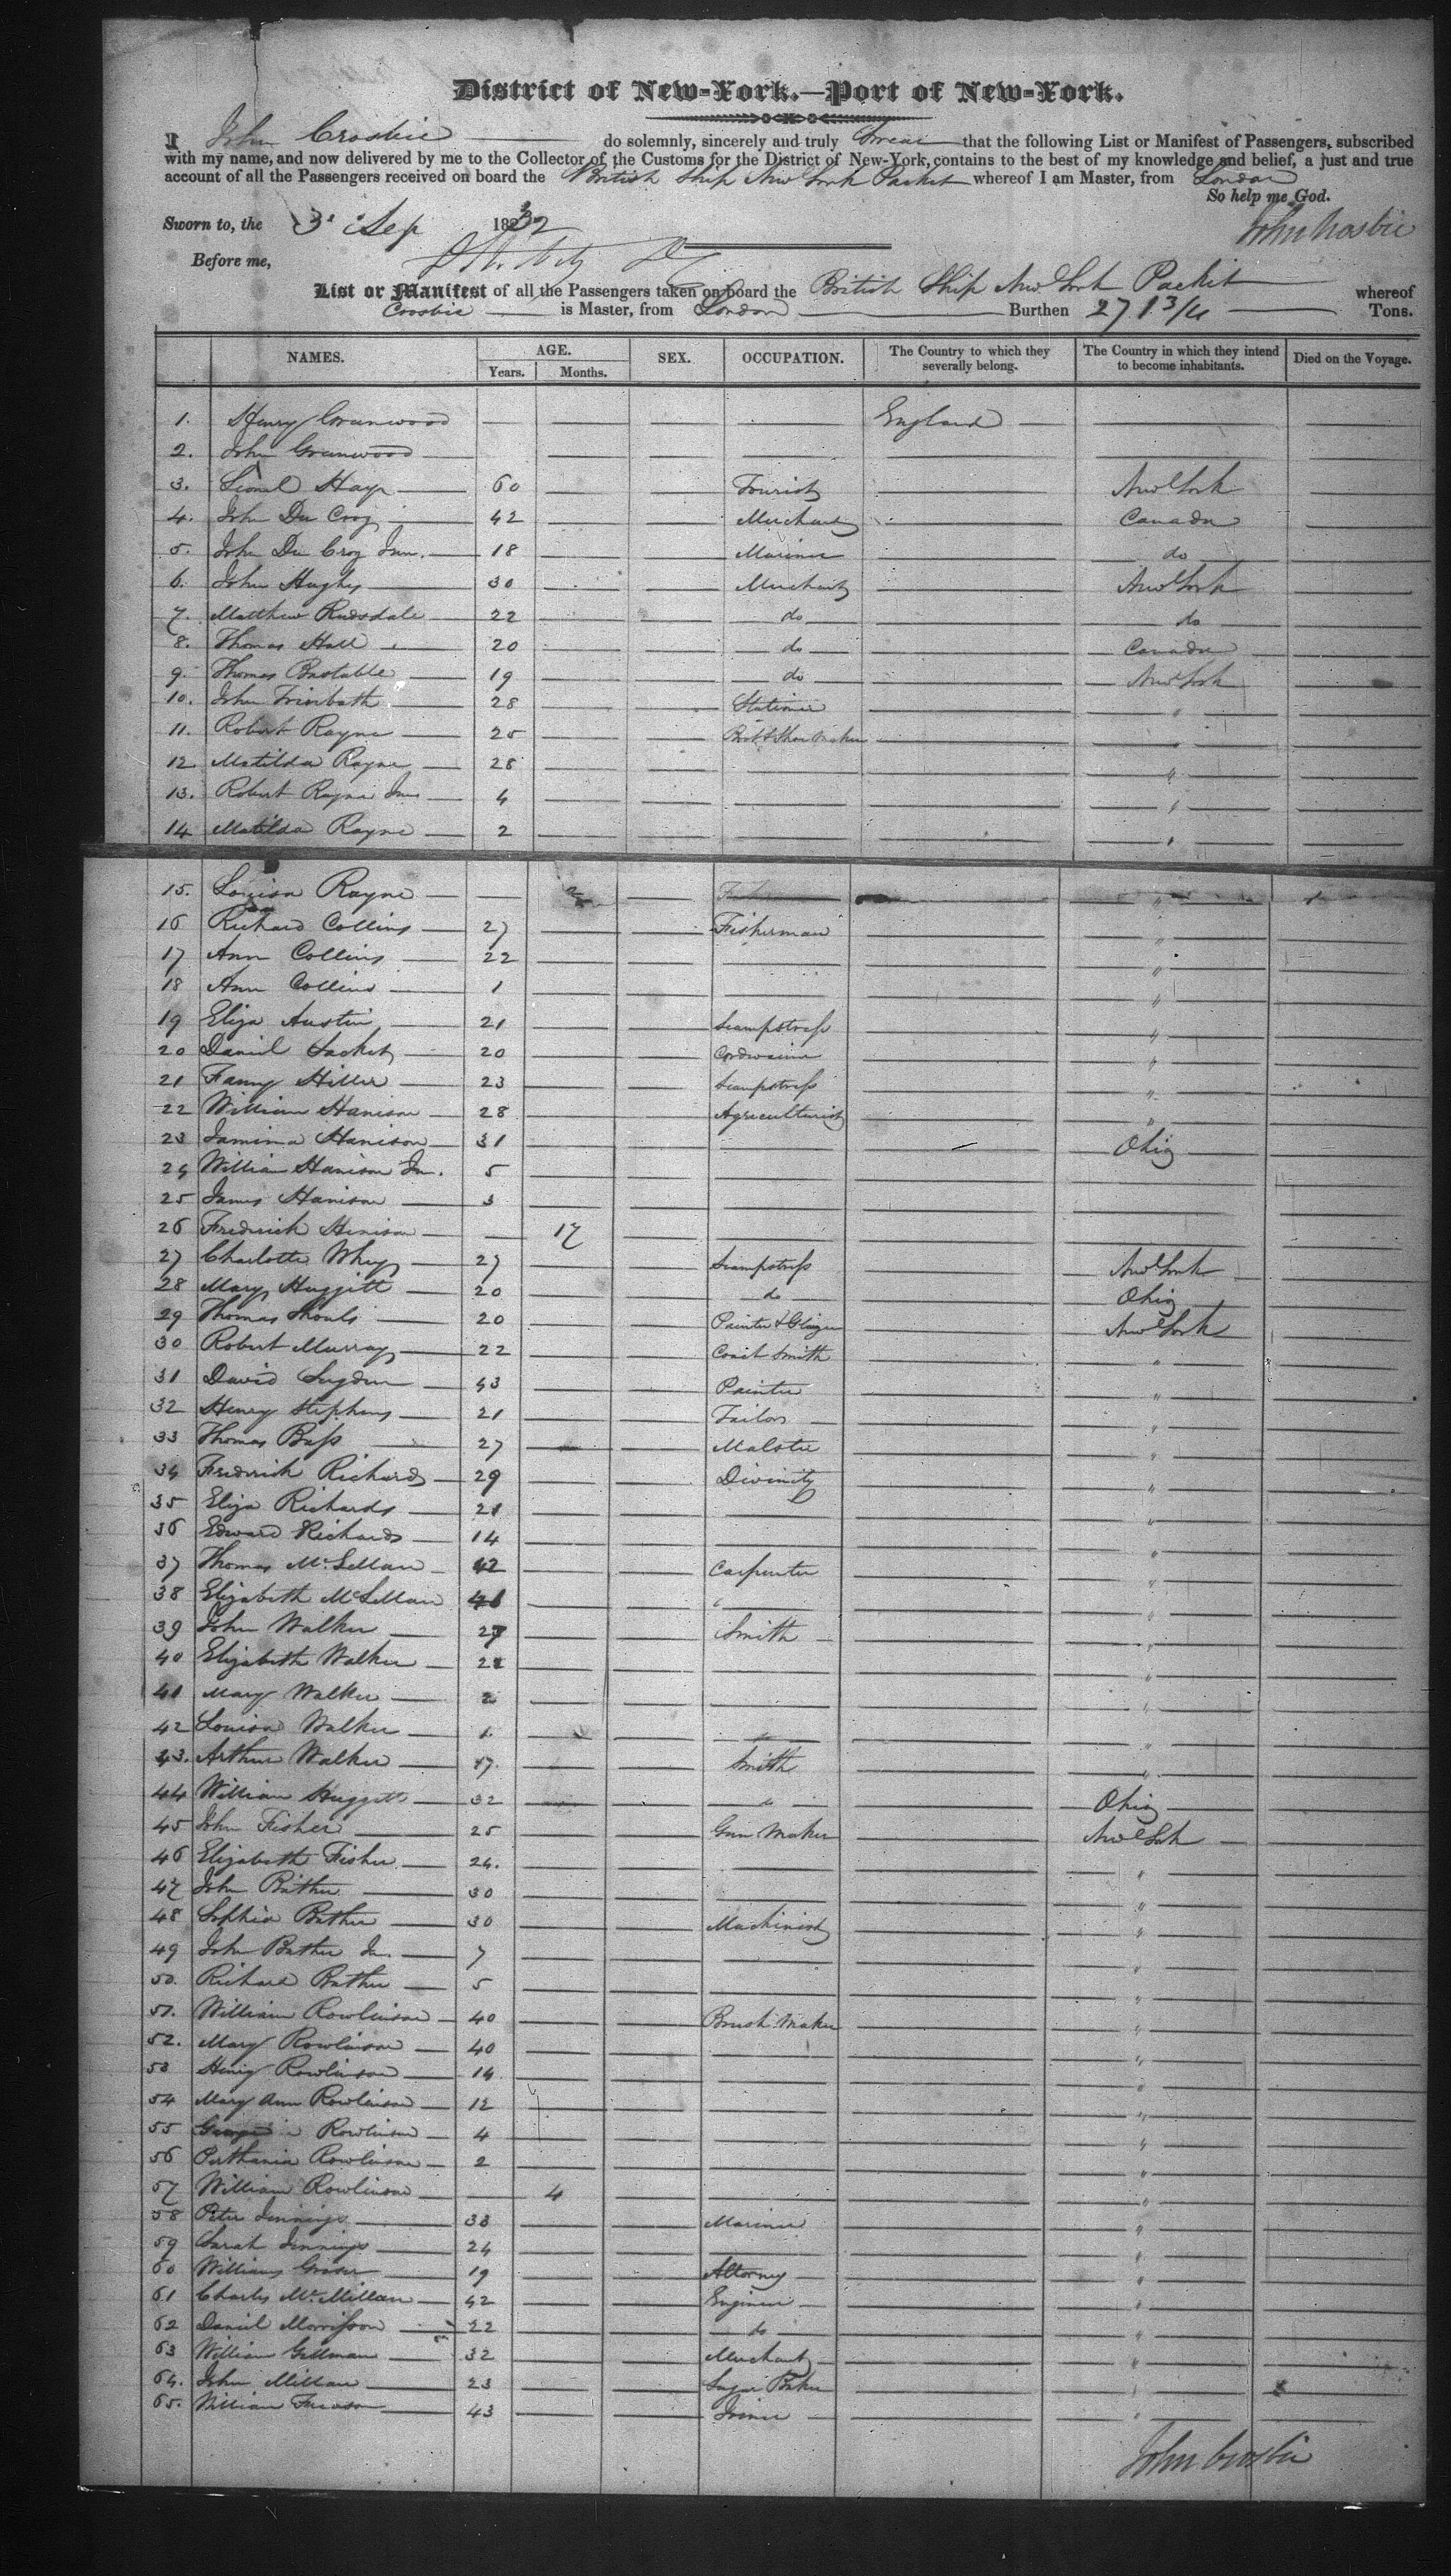 District of New-York.—Port of New-York.
I John Crosbie do solemnly, sincerely and truly Swear that the following List or Manifest of Passengers, subscribed
with my name, and now delivered by me to the Collector of the Customs for the District of New-York, contains to the best of my knowledge and belief, a just and true
account of all the Passengers received on board the British Ship New York Packet whereof I am Master, from London
So help me God.
Sworn to, the 3 Sep 1832 John Crosbie
Before me,
List or Manifest of all the Passengers taken on board the British Ship New York Packet whereof
Crosbie is Master, from London Burthen 271 3/4 Tons.
NAMES. AGE. SEX. OCCUPATION. The Country to which they severally belong. The Country in which they intend to become inhabitants. Died on the Voyage.
Years. Months.
1. Henry Greenwood England
2. John Greenwood
3. Lionel Hays 60 Tourist New York
4. John Du Croz 42 Merchant Canada
5. John Du Croz Jun. 18 Mariner do
6. John Hughes 30 Merchant New York
7. Matthew Rudsdale 22 do do
8. Thomas Hall 20 do Canada
9. Thomas Bastable 19 do New York
10. John 28 Stationer "
11. Robert Rayne 25 Boot & Shoe Maker "
12 Matilda Rayne 28 "
13. Robert Rayne Jun 4 "
14 Matilda Rayne 2 "
15. Louisa Rayne "
16 Richard Collins 27 Fisherman "
17 Ann Collins 22 "
18 Ann Collins 1 "
19 Eliza Austin 21 Seampstress "
20 Daniel Sacket 20 Cordwainer "
21 Fanny Hiller 23 Seampstress "
22 William Harrison 28 Agriculturist "
23 Jamima Harrison 31 Ohio
24 William Harrison Jn. 5
25 James Harrison 3
26 Fredrick Harrison 17
27 Charlotte 27 Seampstress New York
28 Mary Huggitt 20 do Ohio
29 Thomas 20 Painter & Glazier New York
30 Robert Murray 22 Coach Smith "
31 David Sugden 43 Painter "
32 Henry Stephens 21 Tailor "
33 Thomas Bass 27 Malster "
34 Fredrick Richards 29 Divinity "
35 Eliza Richards 21 "
36 Edward Richards 14 "
37 Thomas McLellan 42 Carpenter "
38 Elizabeth McLellan 41 "
39 John Walker 27 Smith "
40 Elizabeth Walker 22 "
41 Mary Walker 2 "
42 Louisa Walker 1. "
43. Arthur Walker 17. Smith "
44 William Huggitt 32 " Ohio
45 John Fisher 25 Gun Maker New York
46 Elizabeth Fisher 24. "
47 John Bather 30 "
48 Sophia Bather 30 Machinist "
49 John Bather Jn. 7 "
50. Richard Bather 5 "
51. William Rowlinson 40 Brush Maker "
52. Mary Rowlinson 40 "
53 Henry Rowlinson 14 "
54 Mary Ann Rowlinson 12 "
55 Rowlinson 4 "
56 Rowlinson 2 "
57 William Rowlinson 4 "
58 Peter Jennings 33 Mariner "
59 Sarah Jennings 24 "
60 William 19 Attorney "
61 Charles McMillan 42 Engineer "
62 Daniel Morrisson 22 do "
63 William Gillman 32 Merchant "
64. John Millan 23 Sugar Baker "
65. William 43 "
John Crosbie